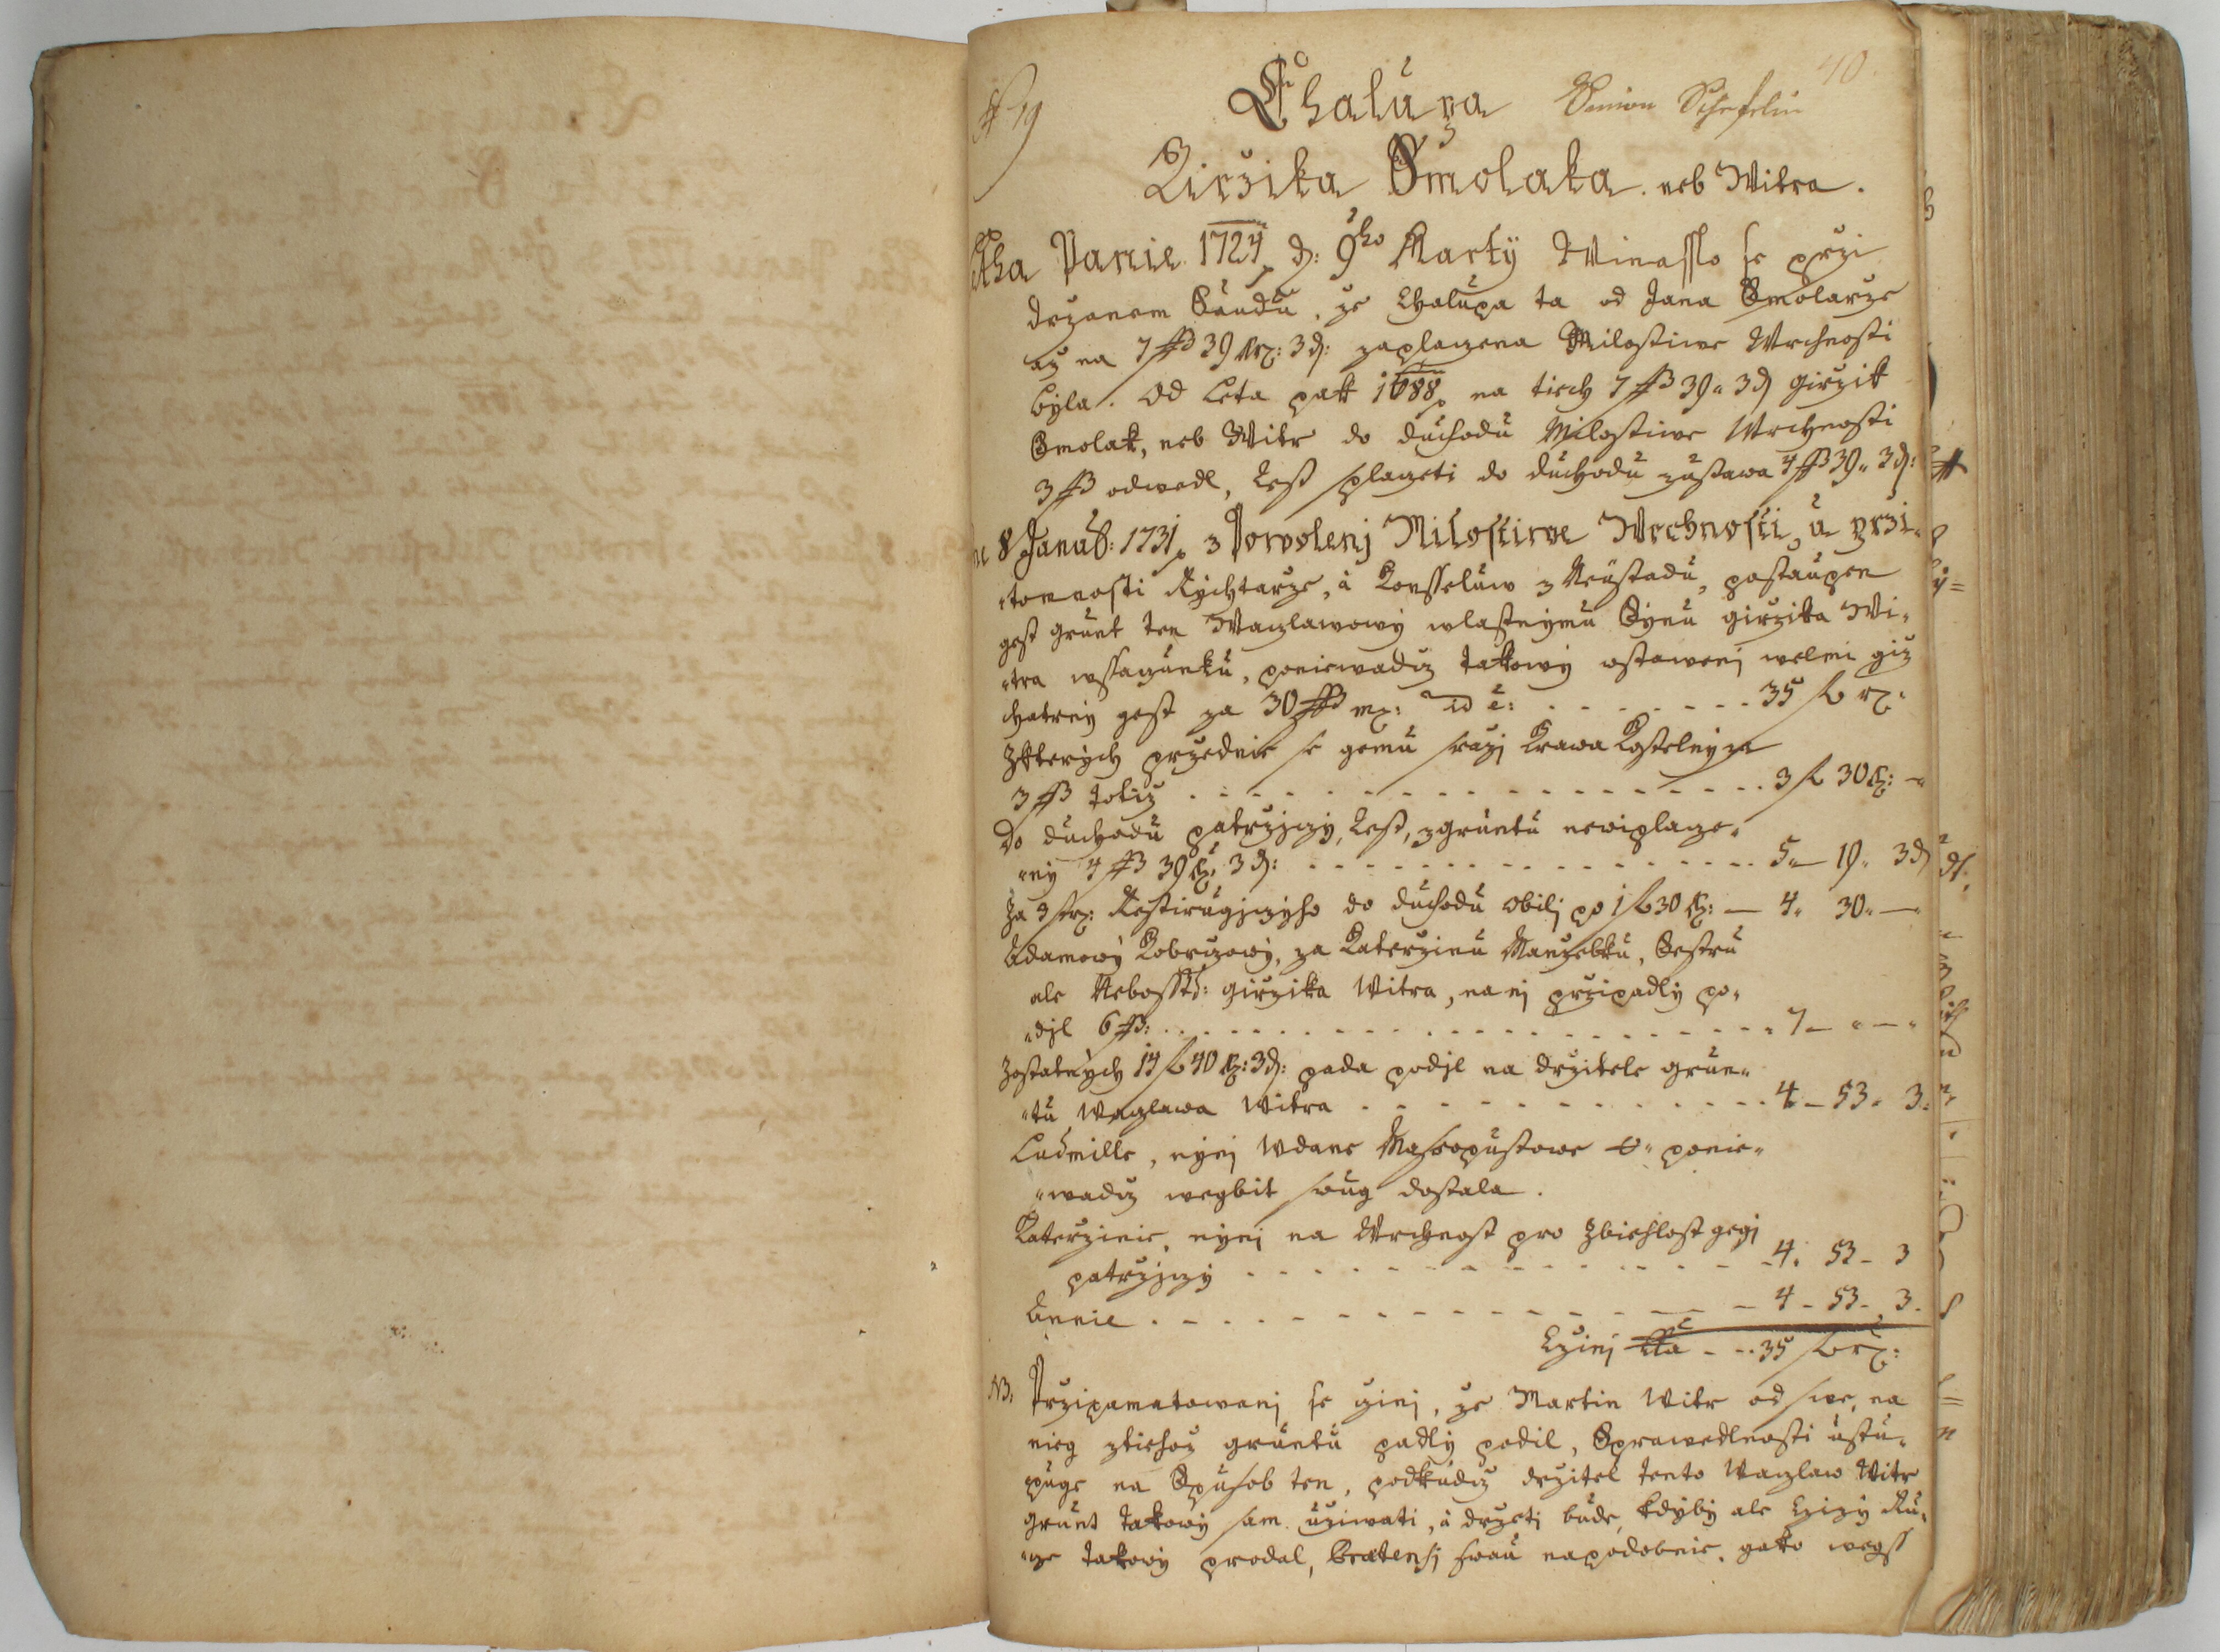 40
N 19
Chalupa Simon Schefelin
Girzika Smolaka. neb Witra.
Letha Panie 1724 d: 9ho Marty Winasslo se przi
drzanem Saudu, ze Chalupa ta od Jana Smolarze
az na 7 ß 39 kr: 3 d: zaplazena Milostiwe Wrchnosti
byla. Od Leta pakk 1688 na tiech 7 ß 39 " 3 d Girzik
Smolak, neb Witr do duchodu Milostiwe Wrchnosti
3 ß odwedl, Rest splazeti do duchodu zustawa 4 ß 39 " 3 d:
8 Janua: 1731 z Powolenj Milostiwe Wrchnosti, a przi=
tomnosti Rychtarze, a Konsseluw z Neustadu, postaupen
gest grunt ten Wazlawowy wlastnymu Synu Girzika Wi=
tra wssazunku, poniewadz takowy ostawenj welmi giz
chatrny gest za 30 ß mz: id e: . . . . . . . . 35 fl rz:
Zkterych przednie se gemu srazj Krawa Kostelny za
3 ß totiz . . . . . . . . . . . . . . . . 3 fl 30 kr: —
Do duchodu patrzjczy, Rest, z gruntu newiplaze=
ny 4 ß 39 kr: 3 d: . . . . . . . . . . . . . . 5 — 19 " 3 d
Za 3 str: Restirugjczyho do duchodu Obilj po 1 fl 30 kr: — 4 " 30 " —
Adamowy Kobrzowy, za Katerzinu Manzelku, Sestru
ale Nebosst: Girzika Witra, na nj przipadly po=
djl 6 ß: . . . . . . . . . . . . . . . . . . 7 — " — "
Zostatnych 14 fl 40 kr: 3 d: pada podjl na drzitele grun=
tu Wazlawa Witra . . . . . . . . . . . . 4 — 53 " 3 "
Ludmille, nynj Wdane Masopustowe 0 " ponie=
wadz wegbit swug dostala.
Katerzinie, nynj na Wrchnost pro Zbiehlost gegj
patrzjczy . . . . . . . . . . . . . . 4 " 53 — 3
Annie . . . . . . . . . . . . . . . . 4 — 53 — 3
Czinj Sua — . . 35 fl rz:
NB. Przipamatowanj se czinj, ze Martin Witr od swe, na
nieg ztiehoz gruntu padly podil, Sprawedlnosti ustu=
puge na Spusob ten, podkudz drzitel tento Wazlaw Witr
grunt takowy sam uziwati, a drzeti bude, kdyby ale Czizy Ru=
ze takowy prodal, Pratensj swau napodobnie, gako wegss